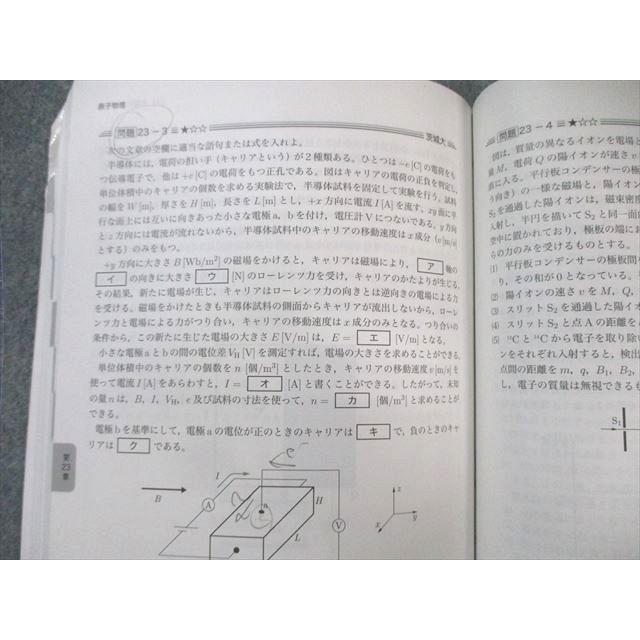 原子物理
問題 23-3 ★☆☆ 茨城大
次の文章の空欄に適当な語句または式を入れよ。
半導体には、電荷の担い手（キャリアという）が2種類ある。ひとつは−e[C]の電荷をも
つ伝導電子で、他は+e[C]の電荷をもつ正孔である。図はキャリアの電荷の正負を判定し、
単位体積中のキャリアの個数を求める実験法で、半導体試料を固定して実験を行う。試料
の幅をW[m]、厚さをH[m]、長さをL[m]とし、+x方向に電流I[A]を流す。xy面に平
行な面上には互いに向きあった小さな電極a、bを付け、電圧計Vにつないである。y方向
とz方向には電流が流れないから、半導体試料中のキャリアの移動速度はx成分(v[m/s]
とする)のみをもつ。
+y方向に大きさB[Wb/m²]の磁場をかけると、キャリアは磁場により、ア 軸の
イ の向きに大きさ ウ [N]のローレンツ力を受け、キャリアのかたよりが生じる。
その結果、新たに電場が生じ、キャリアはローレンツ力の向きとは逆向きの電場による力
を受ける。磁場をかけたときも半導体試料の側面からキャリアが流出しないから、ローレ
ンツ力と電場による力がつり合い、キャリアの移動速度はx成分のみとなる。つり合いの
条件から、この新たに生じた電場の大きさE[V/m]は、E= エ [V/m]となる。
小さな電極aとbの間の電位差VH[V]を測定すれば、電場の大きさを求めることができる。
単位体積中のキャリアの個数をn[個/m³]としたとき、キャリアの移動速度v[m/s]を
使って電流I[A]をあらわすと、I= オ [A]と書くことができる。したがって、未知
の量nは、B、I、VH、e及び試料の寸法を使って、n= カ [個/m³]と求めることが
できる。
電極bを基準にして、電極aの電位が正のときのキャリアは キ で、負のときのキャ
リアは ク である。
第23章
B
I
A
a
H
L
V
z
y
x
問題 23-4 ★☆☆
図は、質量の異なるイオンを電場と
量M、電荷Qの陽イオンが速さv
直に入る。平行板コンデンサーの極
う向き)の一様な磁場と、陽イオン
S₂を通過した陽イオンは、磁束密度
入射し、半円を描いてS₂と同一面
空中に置かれており、極板の端にお
らの力のみを受けるものとする。
(1) 平行板コンデンサーの極板間
り、その和が0となっている。
(2) 陽イオンの速さvをM、Q、
(3) スリットS₂を通過した陽イオ
(4) スリットS₂と点Aの距離を
(5) ¹²Cと¹³Cから電子を取り除い
ンをそれぞれ入射すると、検出
点間の距離をm、q、B₁、B₂、
し、電子の質量は無視できるも
S₁